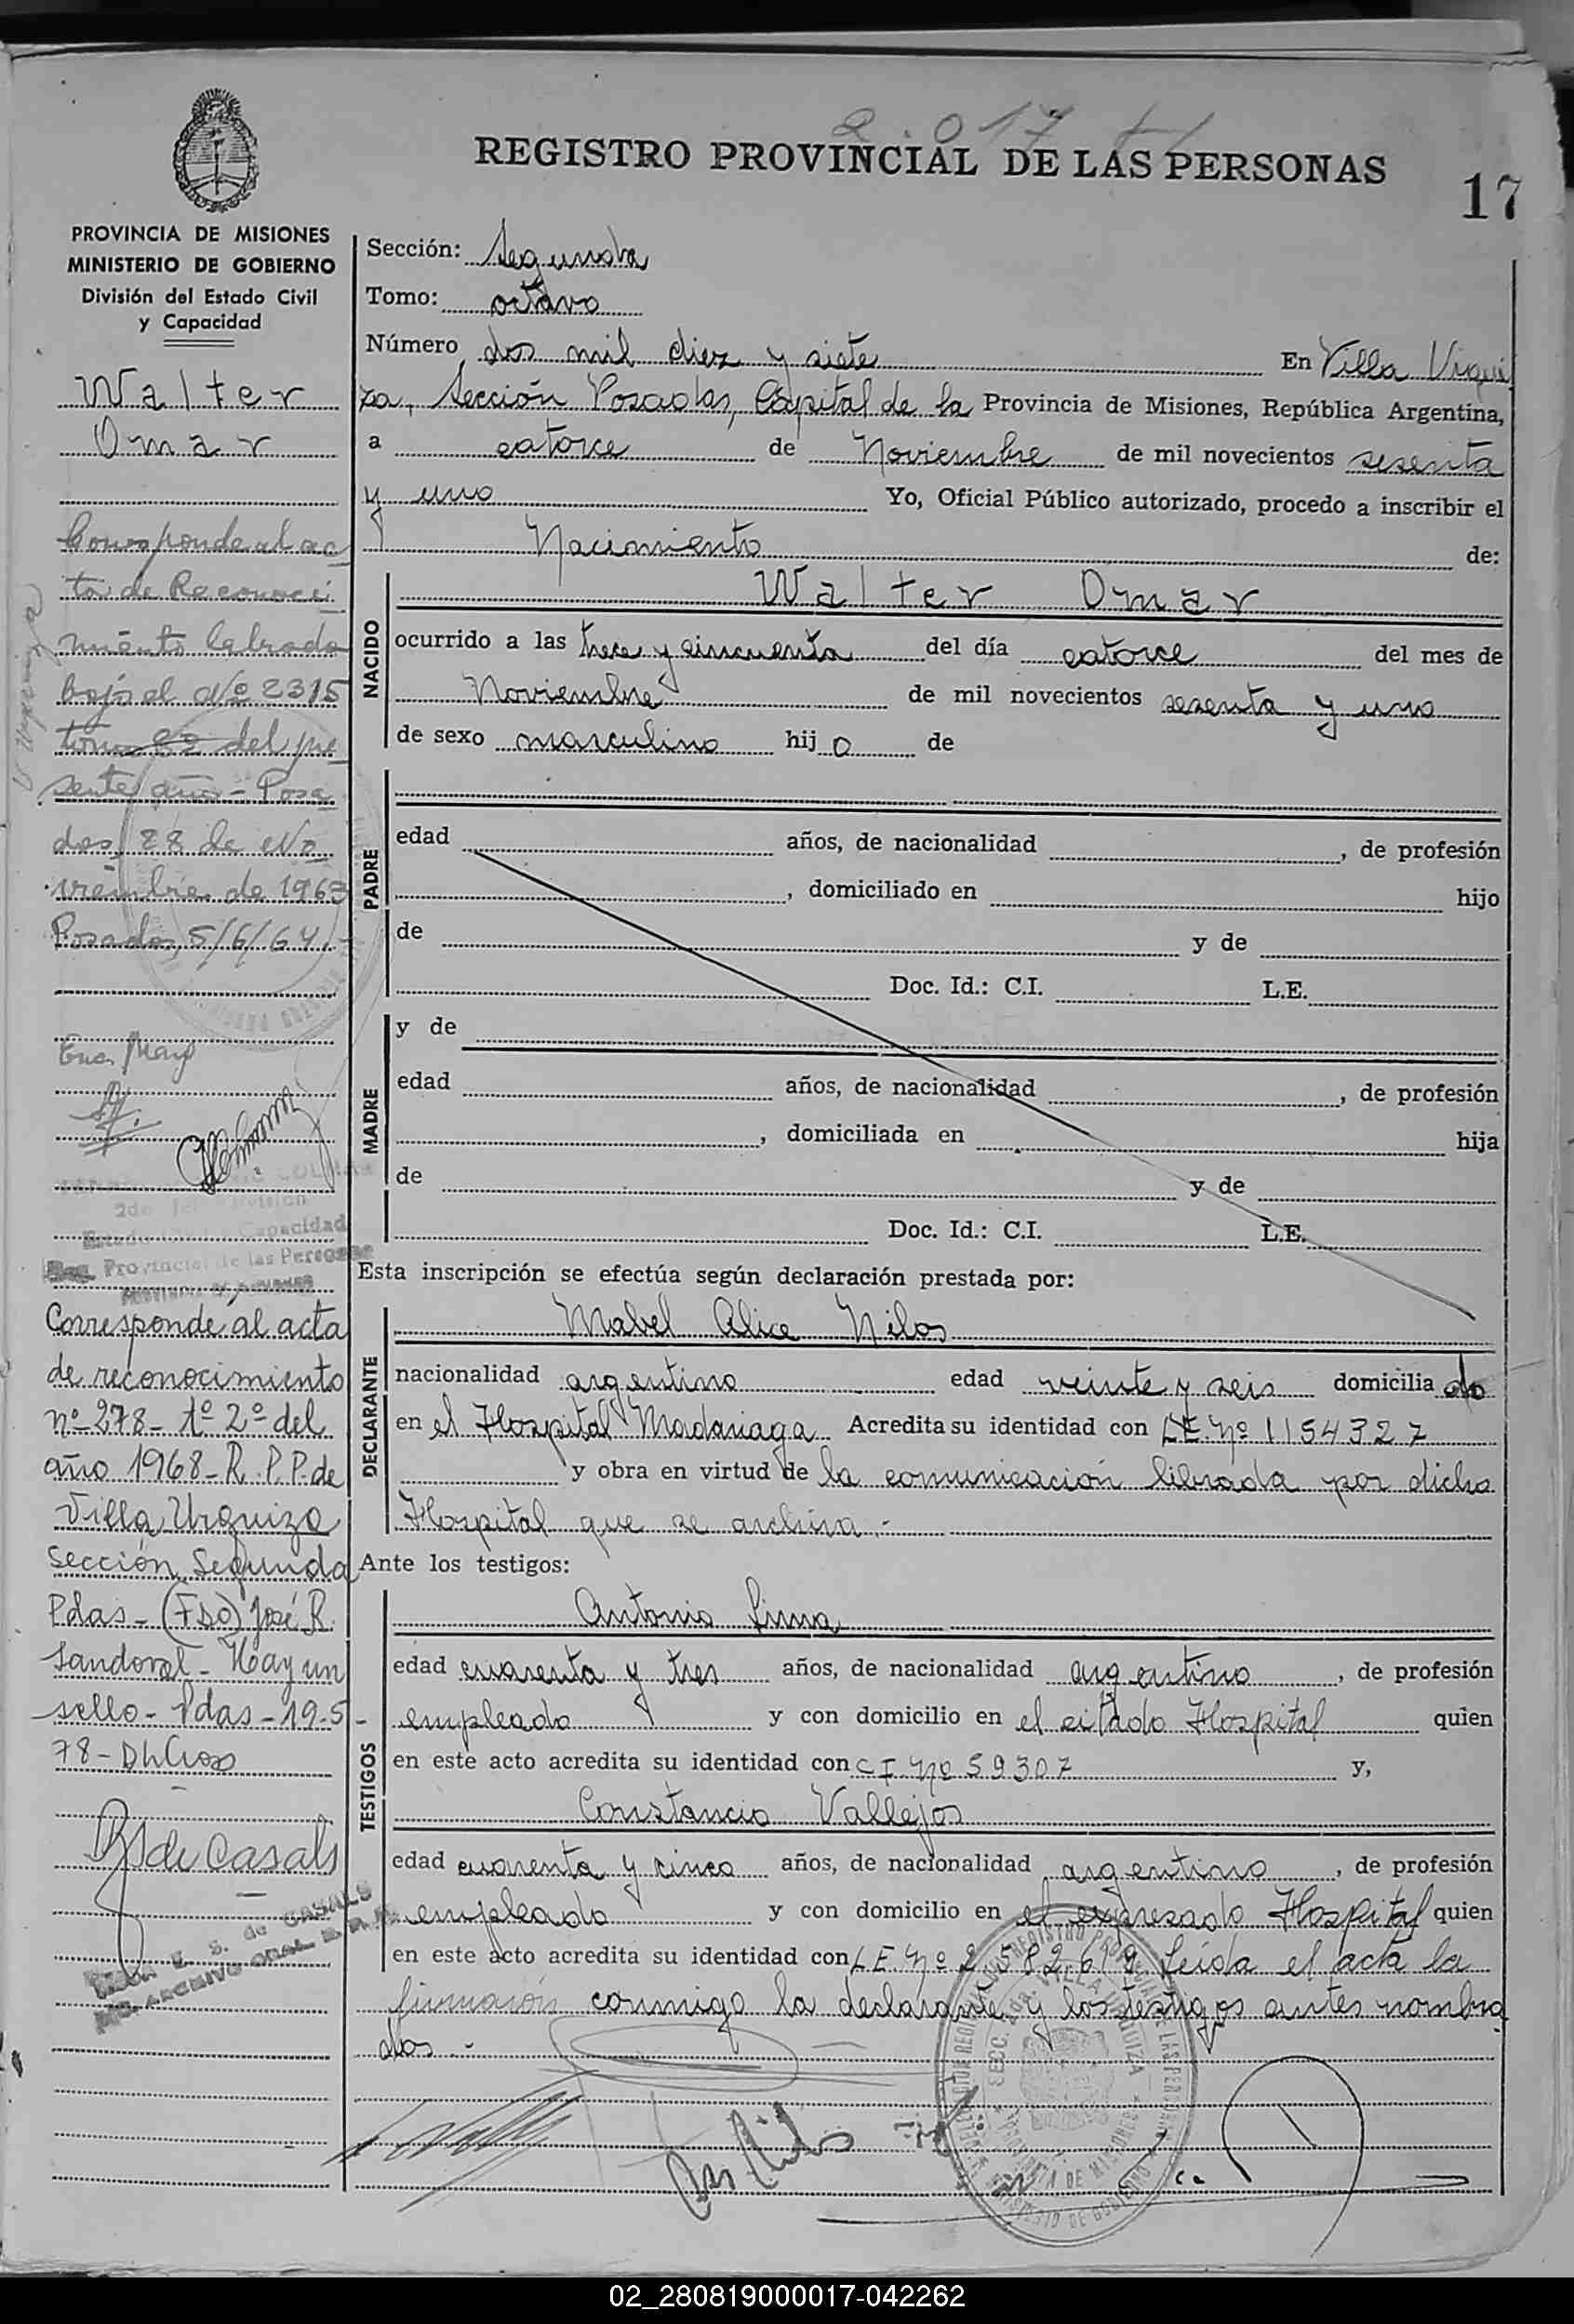 2.017
REGISTRO PROVINCIAL DE LAS PERSONAS
17
PROVINCIA DE MISIONES
MINISTERIO DE GOBIERNO
División del Estado Civil
y Capacidad
Walter
Omar
Corresponde al ac
ta de Reconoci
miento labrado
bajo el Nº 2315
tomo 8º del pre
sente año - Posa
das, 28 de No
viembre de 1963
Posadas, 5/6/64.
V Urquiza
2da
División
Estado Civil y Capacidad
Reg. Provincial de las Personas
PROVINCIA DE MISIONES
Corresponde al acta
de reconocimiento
nº 278 - tº 2º del
año 1968 - R. P. P. de
Villa Urquiza
Sección Segunda
Pdas - (FDO) José R.
Sandoval - Hay un
sello - Pdas - 19-5-
78 -
de Casals
E. S. de CASALS
ARCHIVO GRAL. R.P.P.
Sección: Segunda
Tomo: octavo
Número dos mil diez y siete En Villa Urqui
za, Sección Posadas, Capital de la Provincia de Misiones, República Argentina,
a catorce de Noviembre de mil novecientos sesenta
y uno Yo, Oficial Público autorizado, procedo a inscribir el
Nacimiento de:
NACIDO
Walter Omar
ocurrido a las trece y cincuenta del día catorce del mes de
Noviembre de mil novecientos sesenta y uno
de sexo masculino hijo de
PADRE
edad años, de nacionalidad , de profesión
, domiciliado en hijo
de y de
Doc. Id.: C.I. L.E.
MADRE
y de
edad años, de nacionalidad , de profesión
, domiciliada en hija
de y de
Doc. Id.: C.I. L.E.
Esta inscripción se efectúa según declaración prestada por:
DECLARANTE
Mabel Alice Nilos
nacionalidad argentina edad veinte y seis domiciliado
en el Hospital Madariaga Acredita su identidad con LE. Nº 1154327
y obra en virtud de la comunicación librada por dicho
Hospital que se archiva.-
Ante los testigos:
TESTIGOS
Antonio Lima
edad cuarenta y tres años, de nacionalidad argentino , de profesión
empleado y con domicilio en el citado Hospital quien
en este acto acredita su identidad con C I Nº 59307 y,
Constancio Vallejos
edad cuarenta y cinco años, de nacionalidad argentino , de profesión
empleado y con domicilio en el expresado Hospital quien
en este acto acredita su identidad con LE Nº 2582619. Leída el acta la
firmaron conmigo la declarante y los testigos antes nombra
dos.-
SECC. 2da. VILLA URQUIZA
PROVINCIA DE MISIONES
02_280819000017-042262